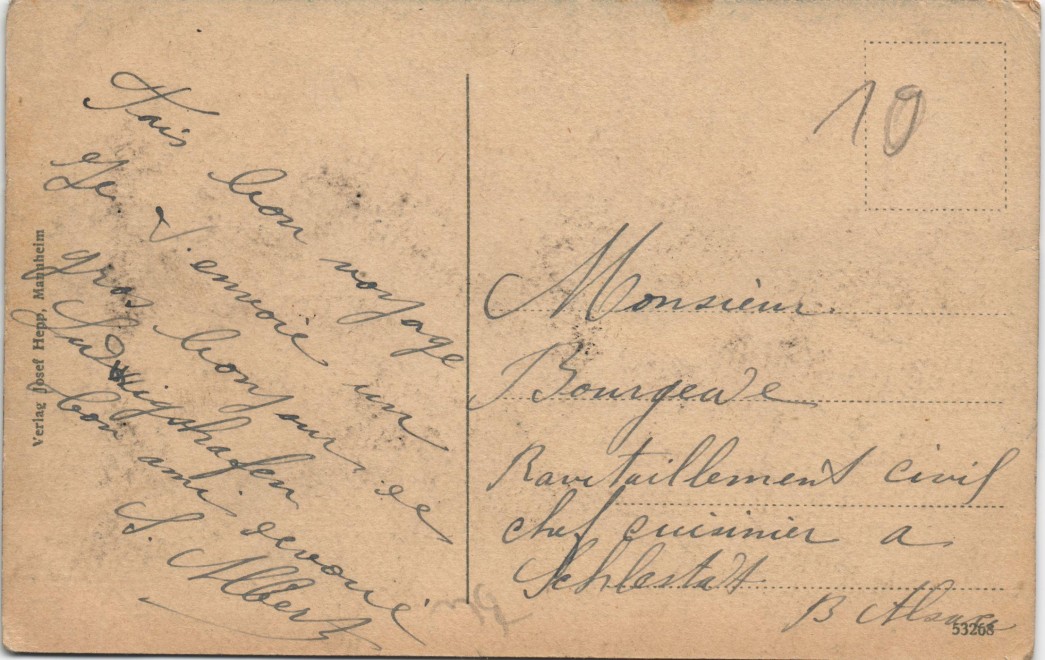 Fais bon voyage
Je t'envoie un
gros bonjour de
Ludwigshafen
bon ami devoué
S. Albert
Verlag Josef Hepp, Mannheim
10
Monsieur
Ravitaillement civil
chef cuisinier a
Schlestadt
B Alsace
53268